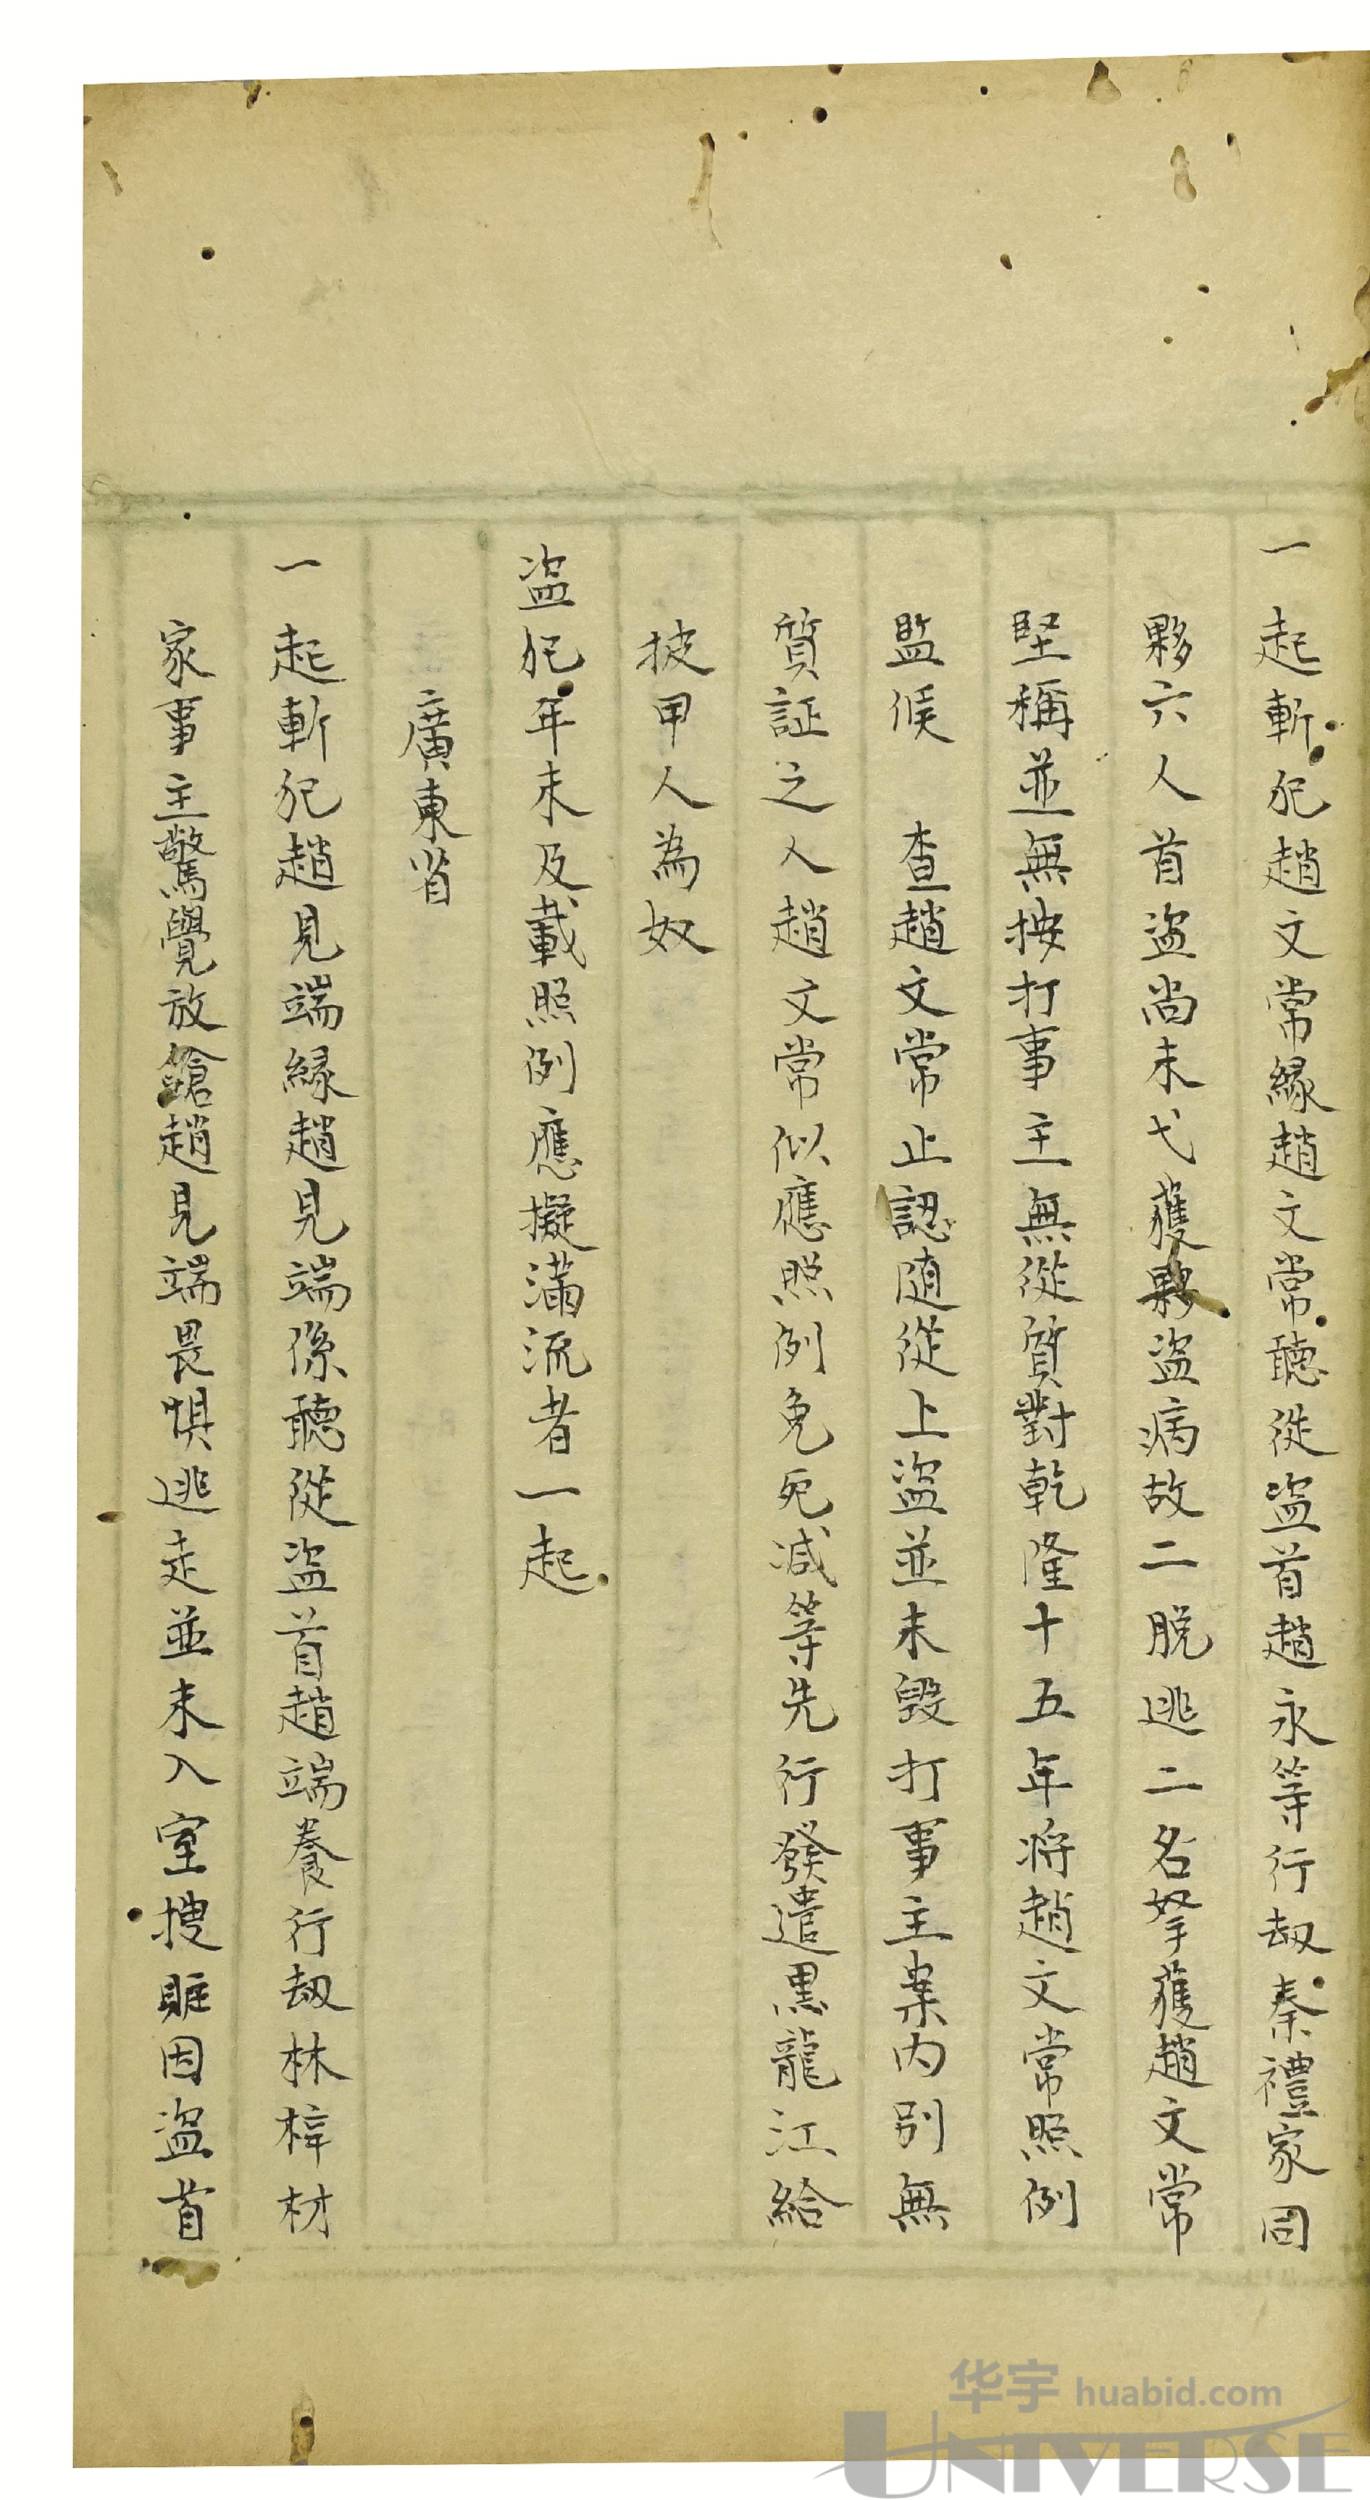 一起斬犯趙文常緣趙文常聽從盜首趙永等行刼秦禮家同
夥六人首盜尚未弋獲夥盜病故二脫逃二名拏獲趙文常
堅稱並無按打事主無從質對乾隆十五年將趙文常照例
監候 查趙文常止認随從上盜並未毆打事主案內別無
質証之人趙文常似應照例免死减等先行發遣黑龍江給
披甲人為奴
盜犯年未及載照例應擬滿流者一起
廣東省
一起斬犯趙見端緣趙見端係聽從盜首趙端養行刼林梓材
家事主驚覺放鎗趙見端畏惧逃走並未入室搜賍因盜首
华宇 huabid.com
UNIVERSE